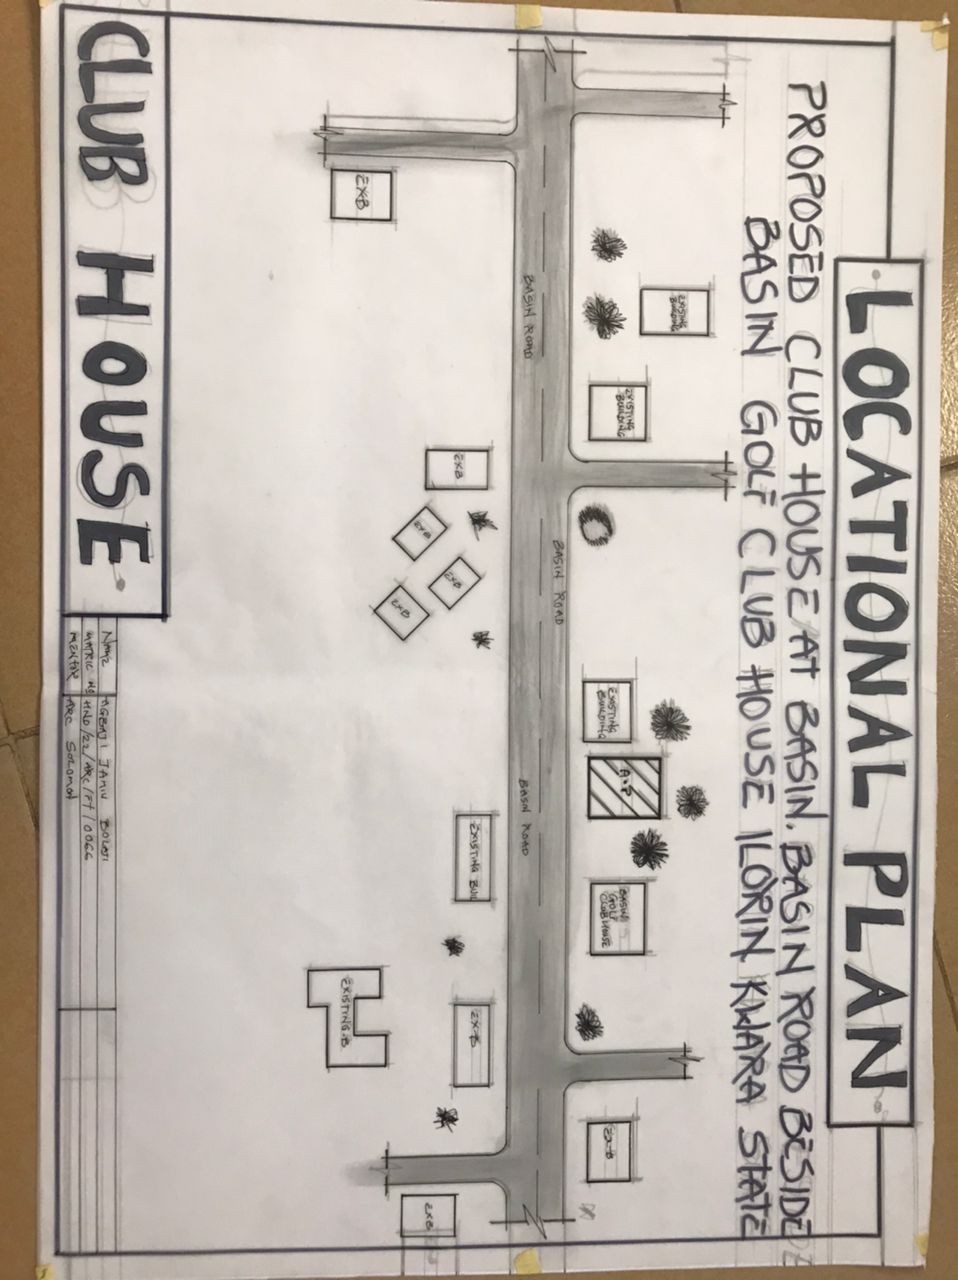 LOCATIONAL PLAN
PROPOSED CLUB HOUSE AT BASIN, BASIN ROAD BESIDE
BASIN GOLF CLUB HOUSE ILORIN KWARA STATE
EXISTING
BUILDING
EXISTING
BUILDING
EXISTING
BUILDING
A.P
BASIN
GOLF
CLUB HOUSE
EX.B
BASIN ROAD
BASIN ROAD
BASIN ROAD
EX.B
EXB
EXB
EXB
EXB
EXISTING BUIL
EX.B
EXISTING.B
EXB
CLUB HOUSE
NAME AGBAJI JAMIU BOLAJI
MATRIC NO HND/22/ARC/FT/0066
MENTOR ARC SOLOMON